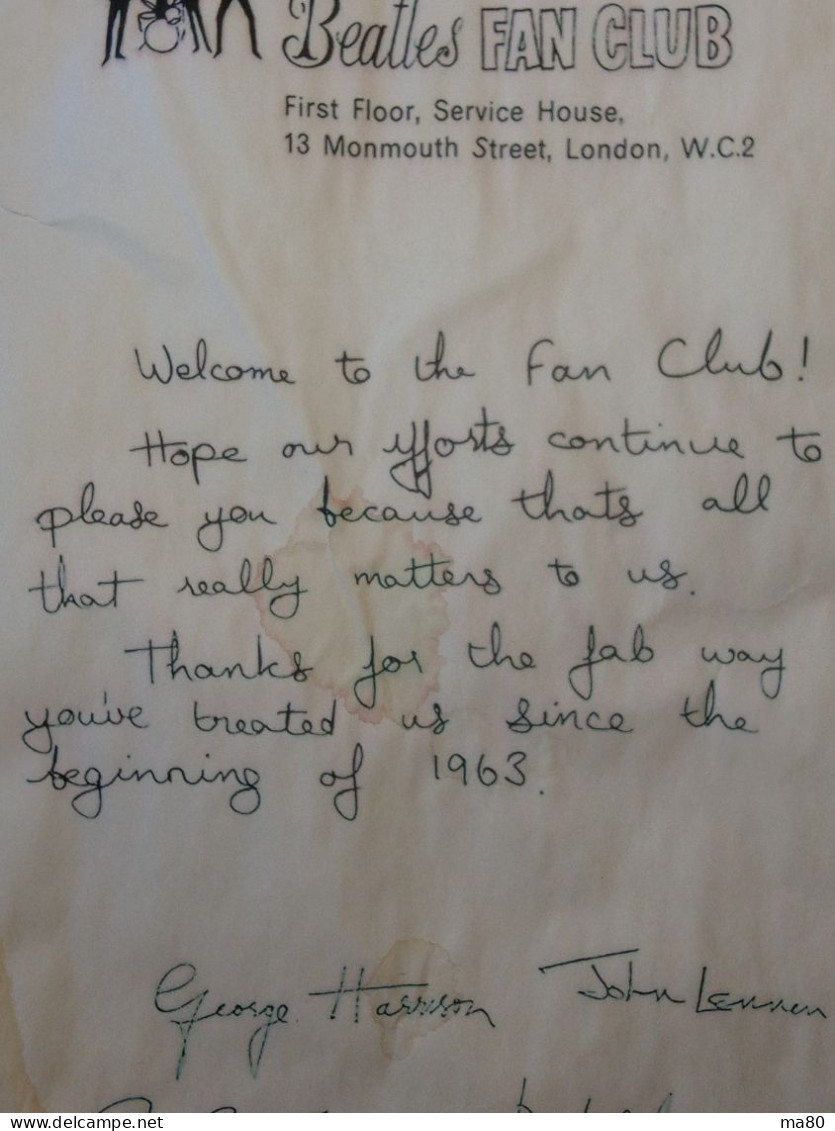 Beatles FAN CLUB
First Floor, Service House,
13 Monmouth Street, London, W.C.2
Welcome to the Fan Club!
Hope our efforts continue to
please you because thats all
that really matters to us.
Thanks for the fab way
you've treated us since the
beginning of 1963.
George Harrison John Lennon
delcampe.net
ma80